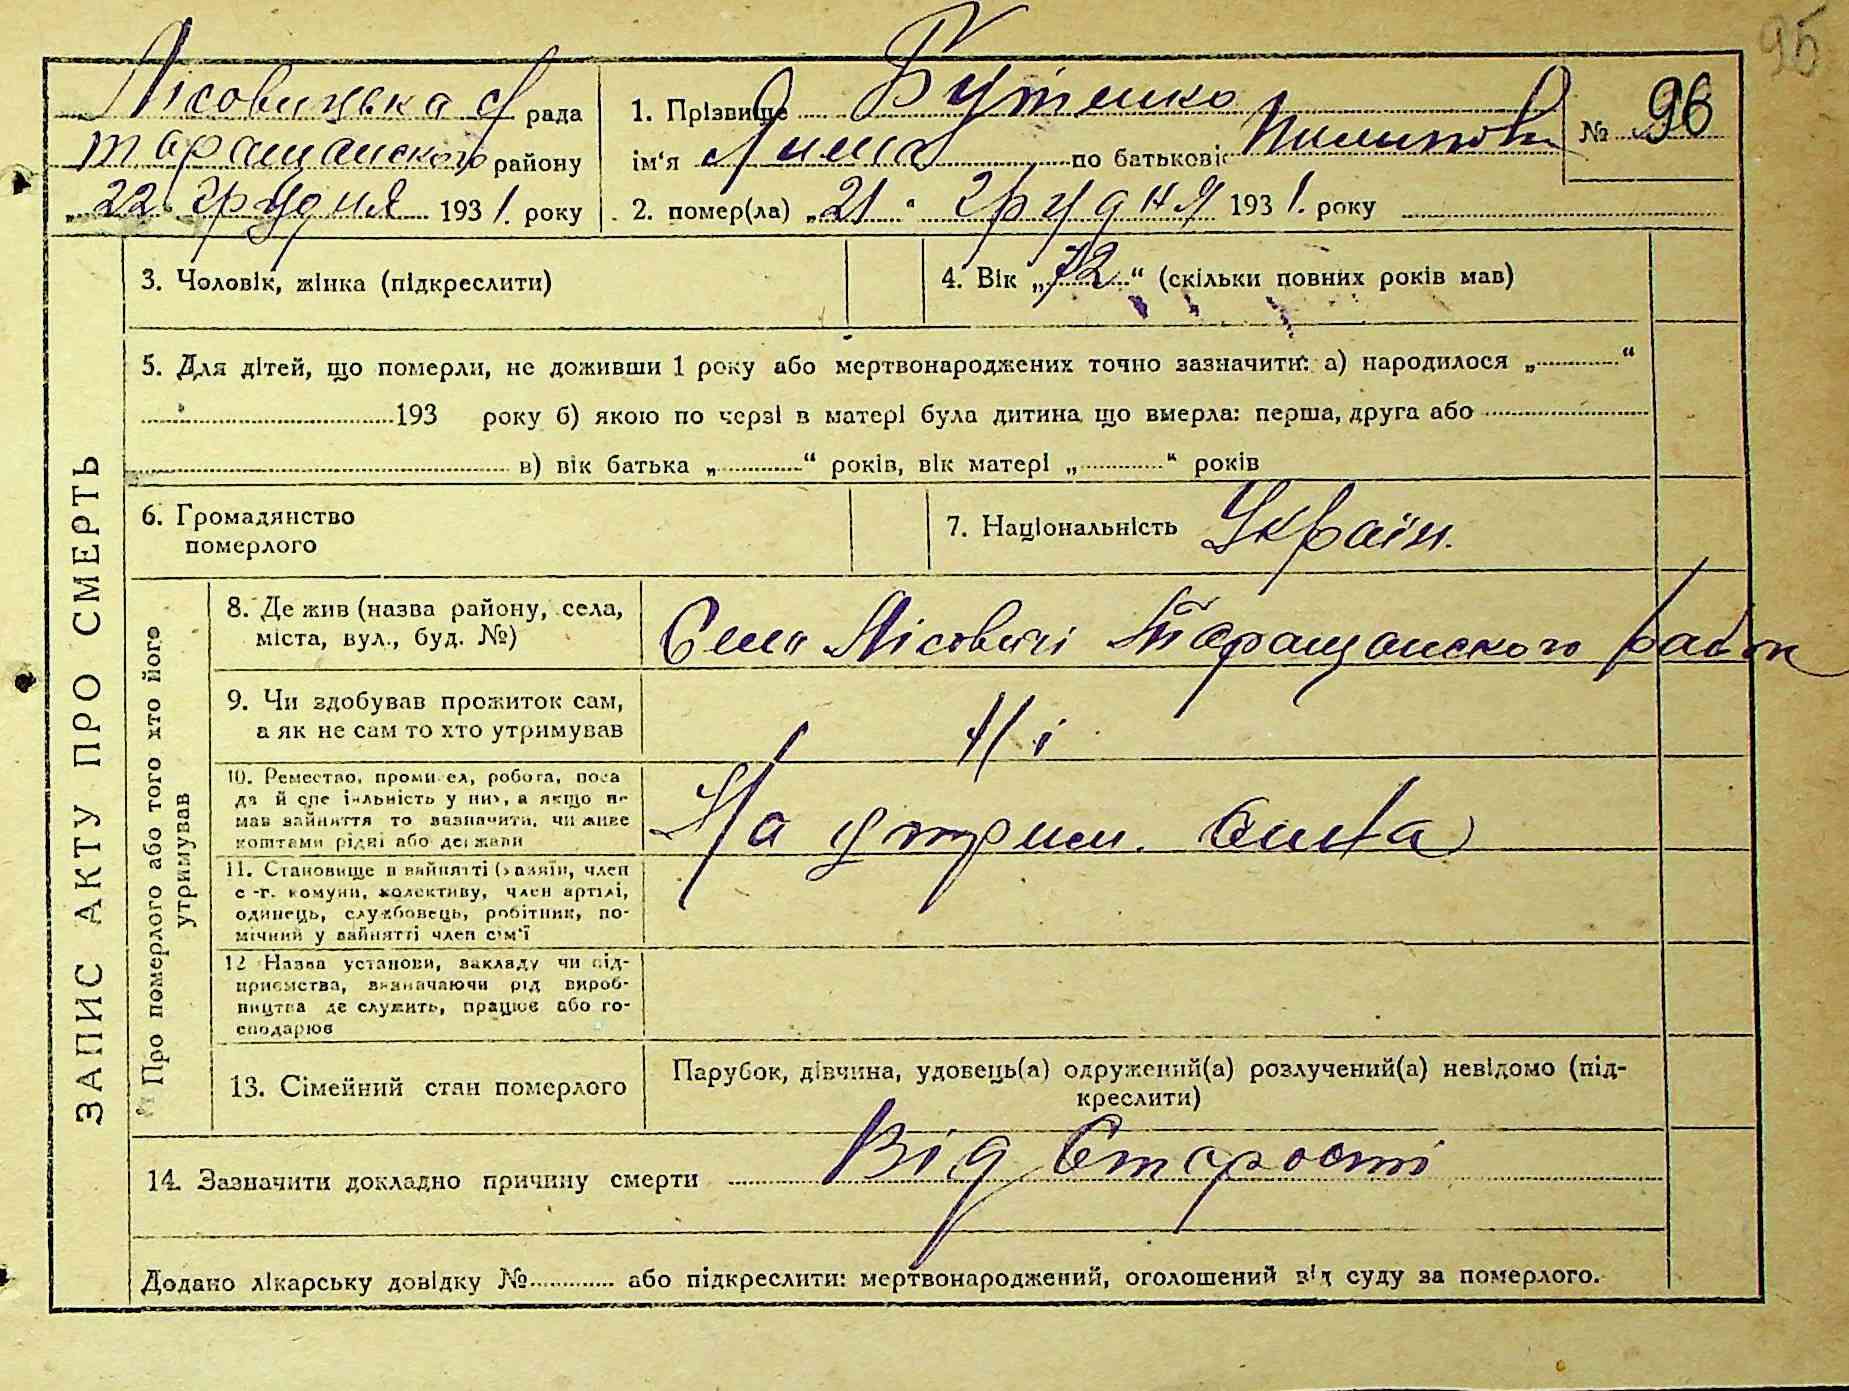 95
Лісовицька с/ рада
таращанского району
„22" грудня 1931. року
1. Прізвище Бутенко
ім'я по батькові
№ 96
2. помер(ла) „21" грудня 1931. року
ЗАПИС АКТУ ПРО СМЕРТЬ
3. Чоловік, жінка (підкреслити)
4. Вік „72" (скільки повних років мав)
5. Для дітей, що померли, не доживши 1 року або мертвонароджених точно зазначити: а) народилося „ "
193 року б) якою по черзі в матері була дитина що вмерла: перша, друга або
в) вік батька „ " років, вік матері „ " років
6. Громадянство
померлого
7. Національність Україн.
Про померлого або того хто його
утримував
8. Де жив (назва району, села,
міста, вул., буд. №)
Село Лісовичі Таращанского район
9. Чи здобував прожиток сам,
а як не сам то хто утримував
Ні
10. Ремество, промисел, робота, поса
да й спеціяльність у них, а якщо не
мав зайняття то зазначити, чи живе
коштами рідні або держави
На утрим. сина
11. Становище в зайнятті (хазяїн, член
с.-г. комуни, колективу, член артілі,
одинець, службовець, робітник, по-
мічний у зайнятті член сім'ї
12 Назва установи, закладу чи під-
приємства, визначаючи рід вироб-
ництва де служить, працює або го-
сподарює
13. Сімейний стан померлого
Парубок, дівчина, удовець(а) одружений(а) розлучений(а) невідомо (під-
креслити)
14. Зазначити докладно причину смерти Від старости
Додано лікарську довідку № або підкреслити: мертвонароджений, оголошений від суду за померлого.